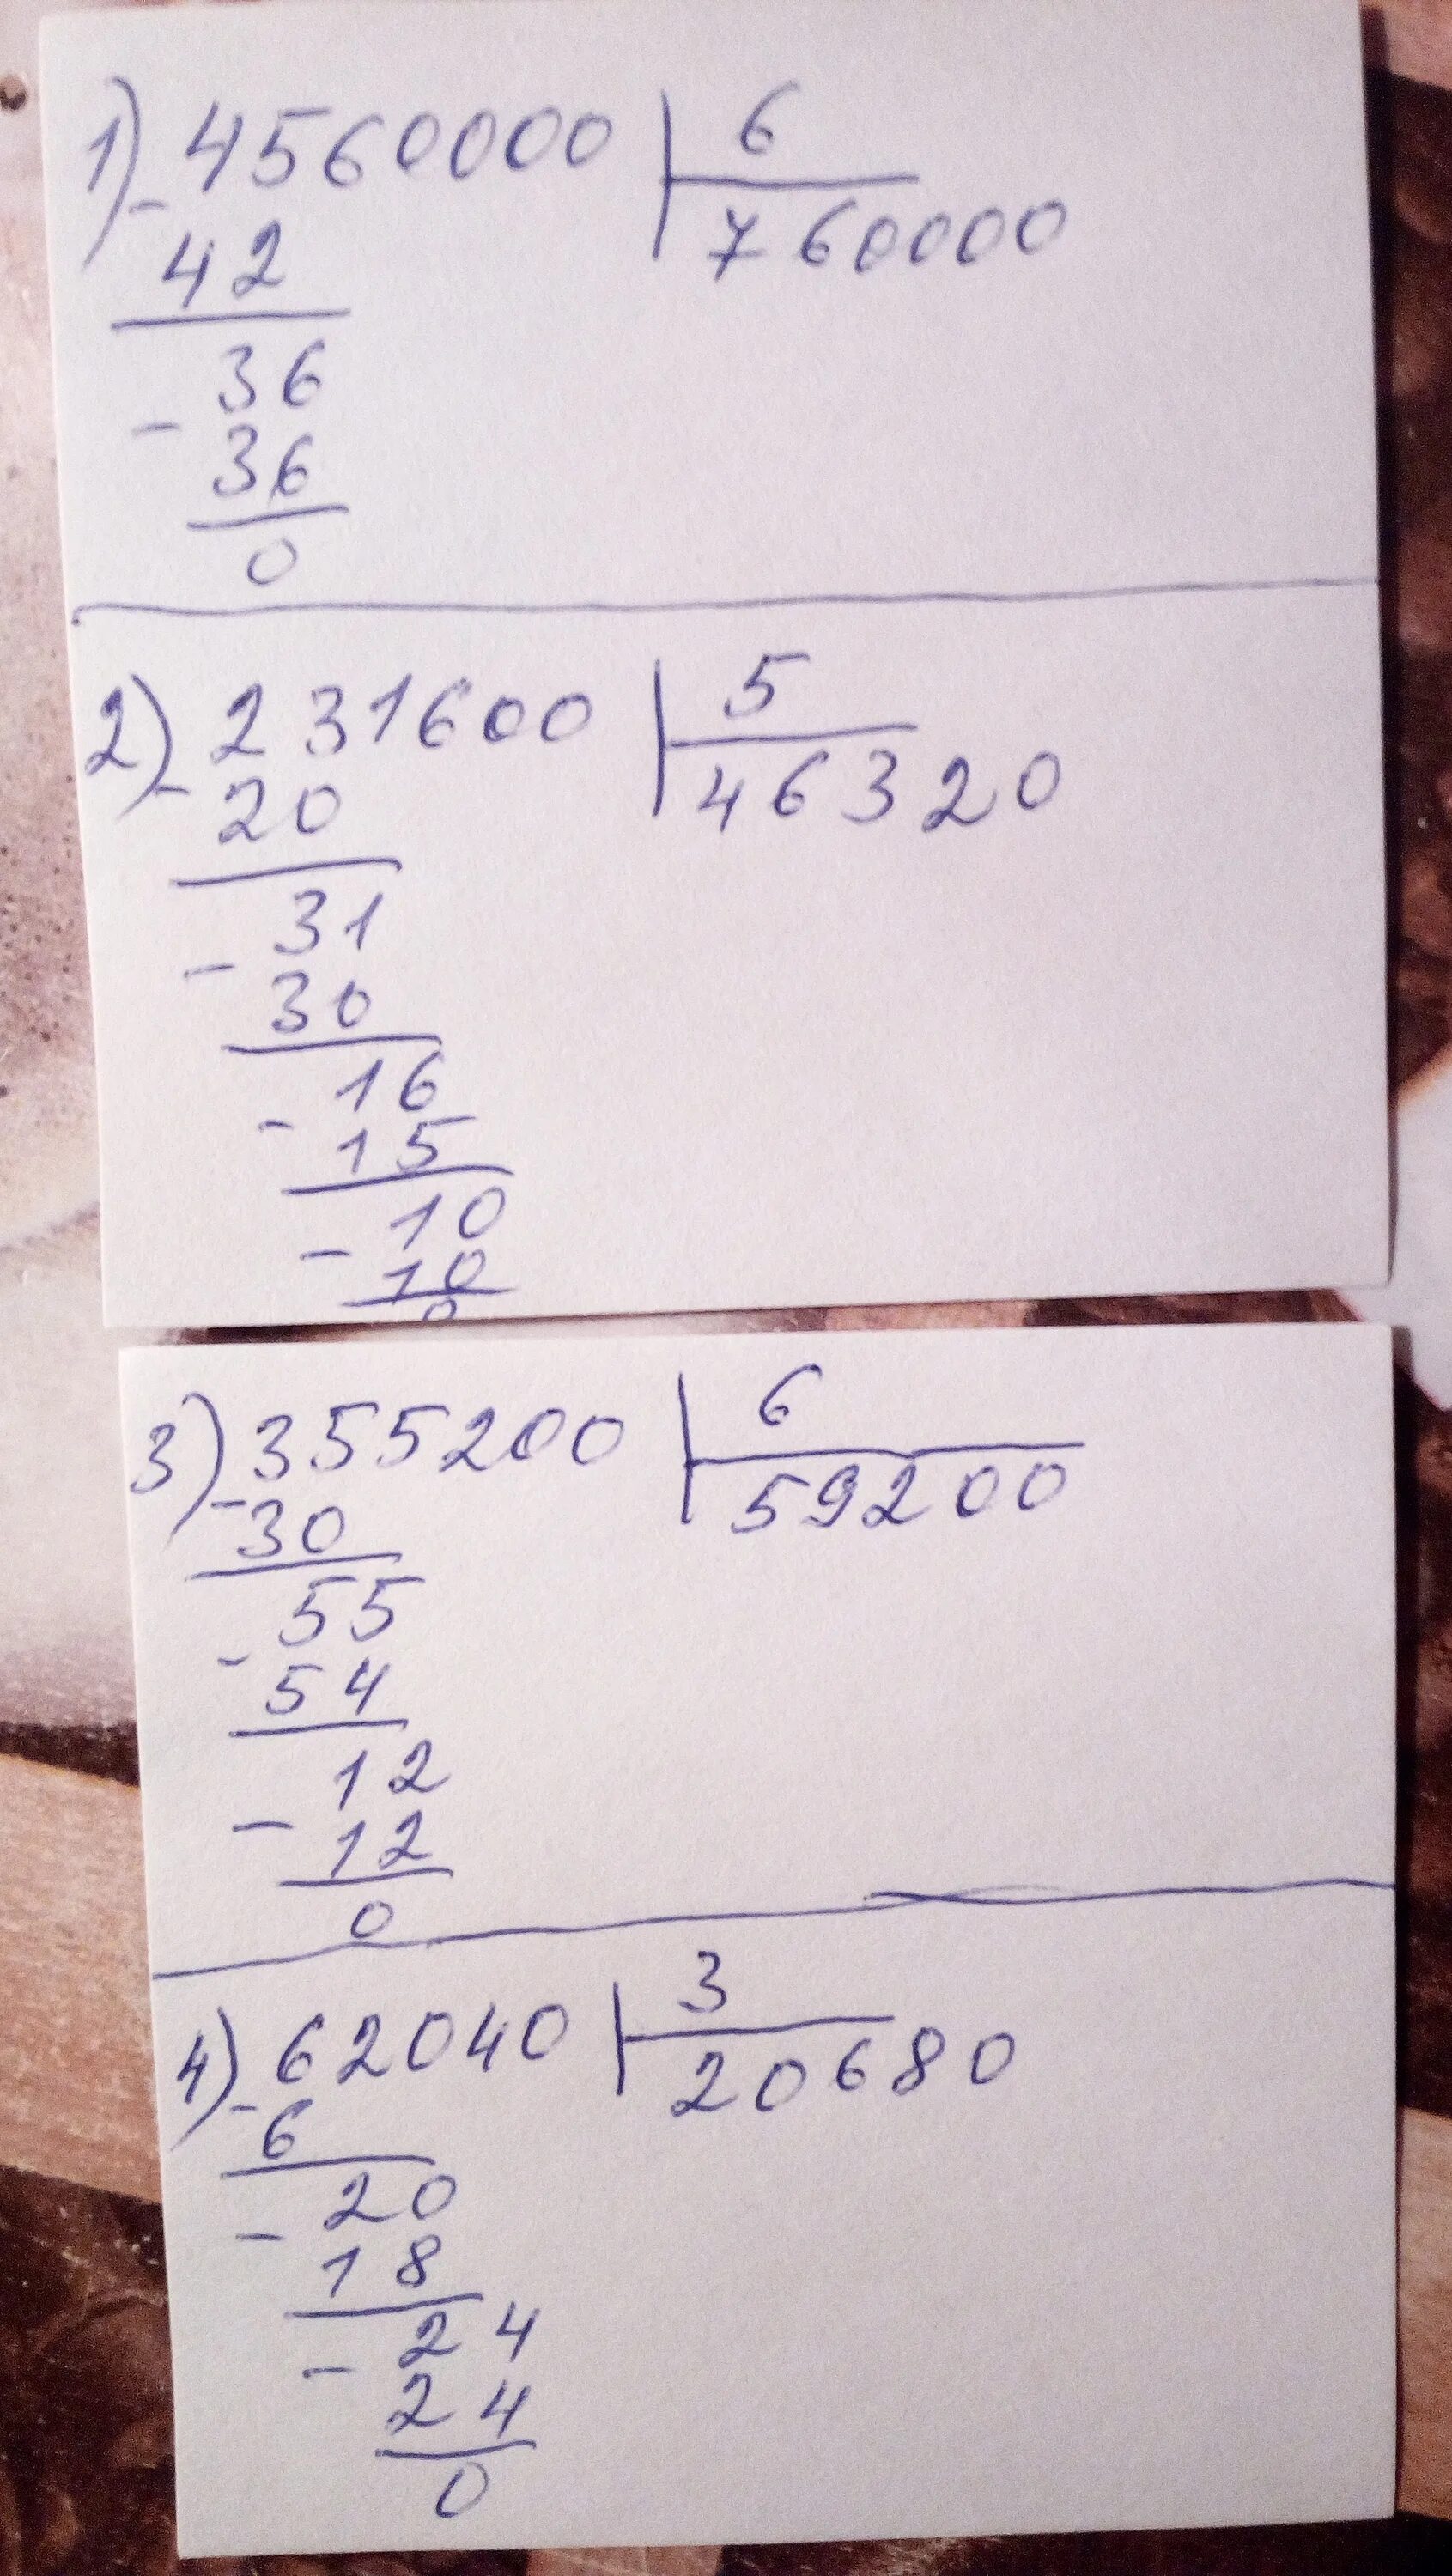 1) - 4560000 | 6
42 | 760000
36
- 36
0
2) - 231600 | 5
20 | 46320
31
- 30
16
- 15
10
- 10
0
3) - 355200 | 6
30 | 59200
55
- 54
12
- 12
0
4) - 62040 | 3
6 | 20680
20
- 18
24
- 24
0